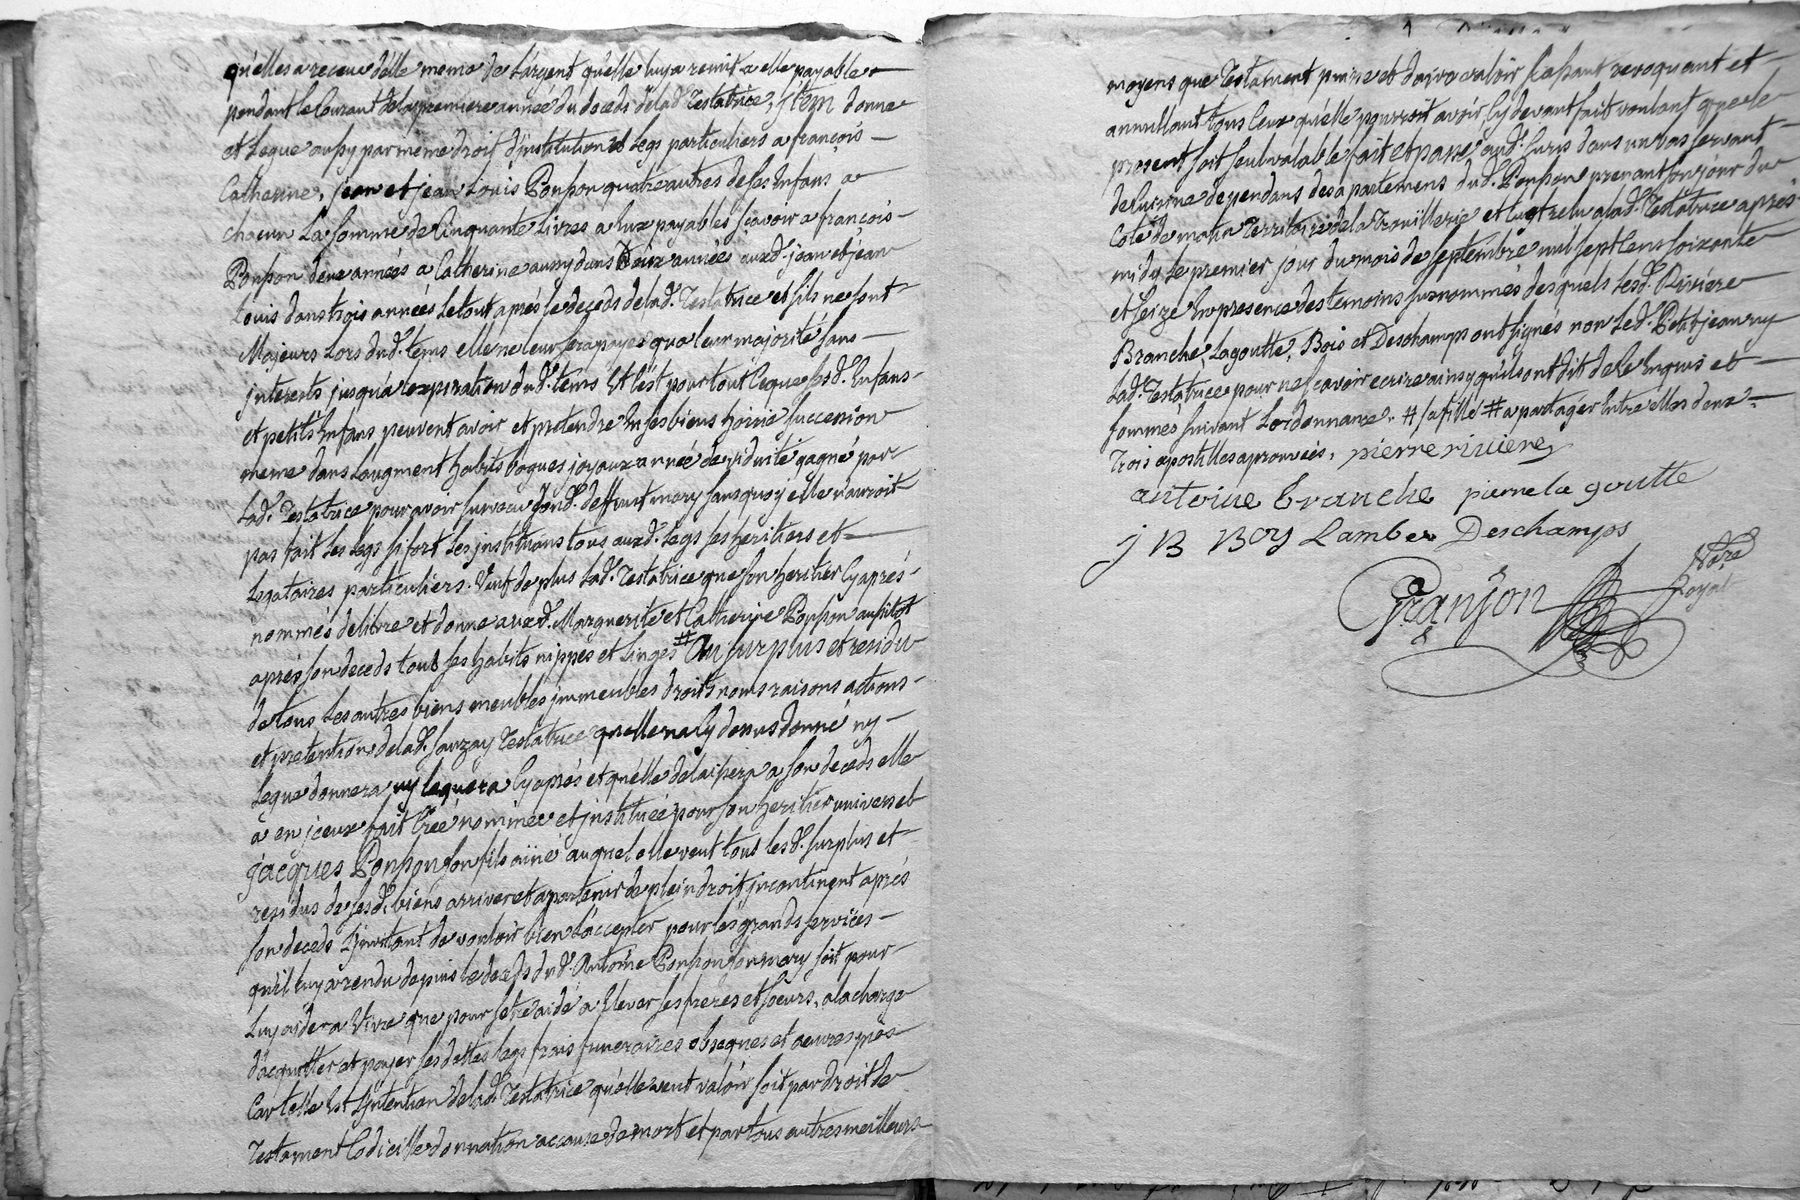 qu'elles a receue d'elle meme de l'argent qu'elle luy a remit a elle payable
pendant le Courant de la premiere année du deceds de lad. Testatrice, Jtem donne
et Legue aussy par meme droit d'institution et Legs particuliers a françois
Catherine, jean et jean Louis Ponson quatre autres de ses Enfans a
chacun La somme de Cinquante Livres a Eux payables sçavoir a françois
Ponson deux années a Catherine aussy dans Deux années auxd. jean et jean
Louis dans trois années Le tout aprés le deceds de lad. Testatrice et s'ils ne sont
Majeurs Lors dud. tems elle ne leur sera payés qu'a leur majorité sans
jnterests jusqu'a l'expiration dud. tems Et C'est pour tout Ceque sesd. Enfans
et petits Enfans peuvent avoir et pretendre En ses biens hoirie succession
meme dans Laugment habits bagues joyaux année de viduité gagné par
Lad. Testatrice pour avoir survecu Sond. deffunt mary sans quoy elle n'auroit
pas fait Les Legs si fort Les jnstituans tous auxd. Legs ses heritiers et
Legataires particuliers. Veut de plus Lad. Testatrice que son heritier Cyaprés
nommés delivre et donne auxd. Marguerite et Catherine Ponson aussitôt
aprés son deceds tous ses habits nippes et Linges # Au surplus et residu
de tous Les autres biens meubles jmmeubles droits noms raisons actions
et pretentions de lad. Sauzay Testatrice qu'elle n'a Cy dessus donné ny
Legue donnera ny leguera Cyaprés et qu'elle delaissera a son deceds elle
a en jceux fait Créé nommée et jnstituée pour son heritier universel
jacques Ponson son fils ainé auquel elle veut tous lesd. surplus et
residus de sesd. biens arriver et apartenir de plein droit jncontinent aprés
son deceds L'jnvitant de vouloir bien L'accepter pour les grands services
qu'il luy a rendu depuis le deceds dud. Antoine Ponson son mary soit pour
Luy aider a Vivre que pour s'etre aidé a Elever ses freres et soeurs, a la charge
d'acquitter et payer ses dettes legs frais funeraires obseques et oeuvres pies
Car telle Est L'jntention de lad. Testatrice qu'elle veut valoir soit par droit de
Testament Codicille donnation a cause de mort et par tous autres meilleurs
moyens que Testament puisse et doive valoir Cassant revoquant et
annullant tous Ceux qu'elle pourroit avoir Cy devant fait voulant que le
present soit seul valable fait et passé aud. dans un bas servant
de Cuisine dependans des apartemens dud. Ponson prenant son jour du
Coté de matin Territoire de la Trouillerie et Lu et relu a lad. Testatrice aprés
midy Le premier jour du mois de septembre mil sept Cens soixante
et seize En presence des temoins susnommés desquels Lesd. Riviere
Branche, Lagoutte, Bois et Deschamps ont signés non Led. Petitjean ny
Lad. Testatrice pour ne sçavoir ecrire ainsy qu'ils ont dit de ce Enquis et
sommés suivant L'ordonnance. # sa fille # a partager Entre elles deux
Trois apostilles aprouvées, pierre riviere
antoine branche pierre la goutte
j B Boy Lamber Deschamps
Granjon Nore
Royal